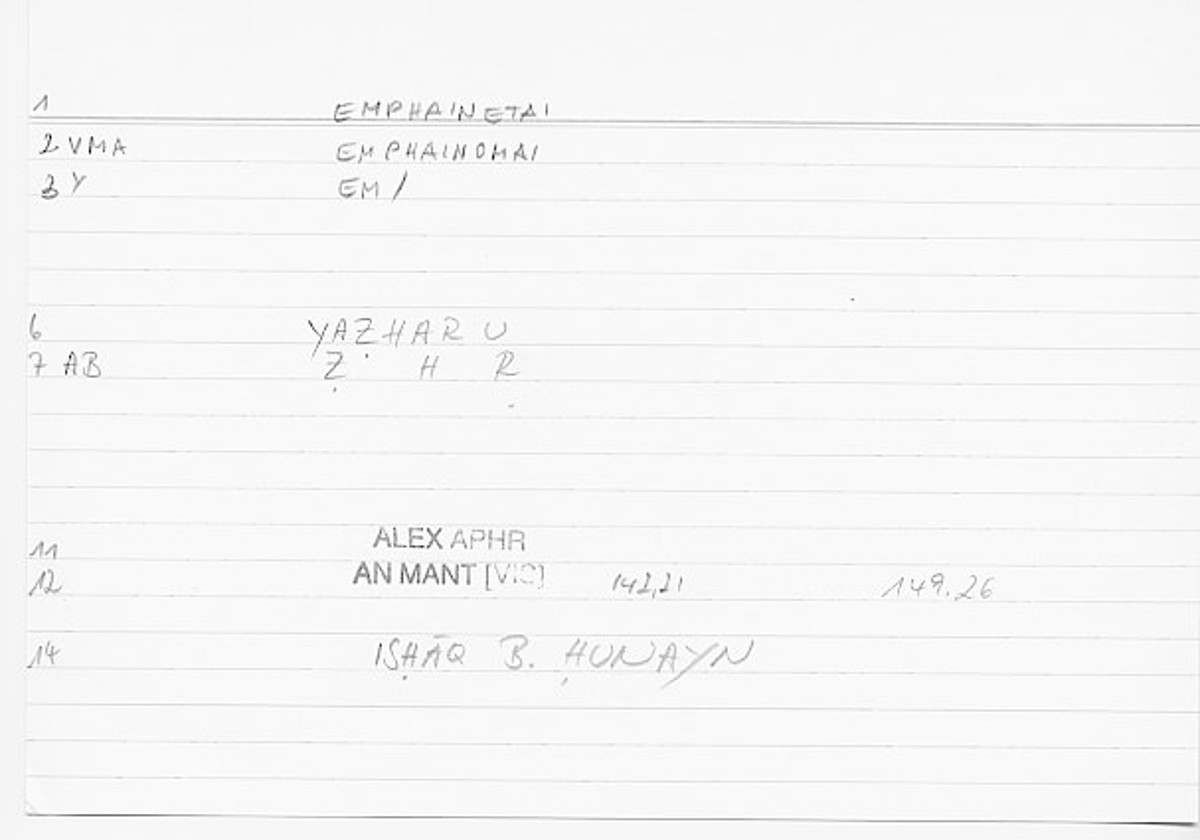 1 EMPHAINETAI
2 VMA EMPHAINOMAI
3 Y EM/
6 YAẒHARU
7 AB Ẓ H R
11 ALEX APHR
12 AN MANT [VIS] 142,21 149.26
14 ISḤĀQ B. ḤUNAYN